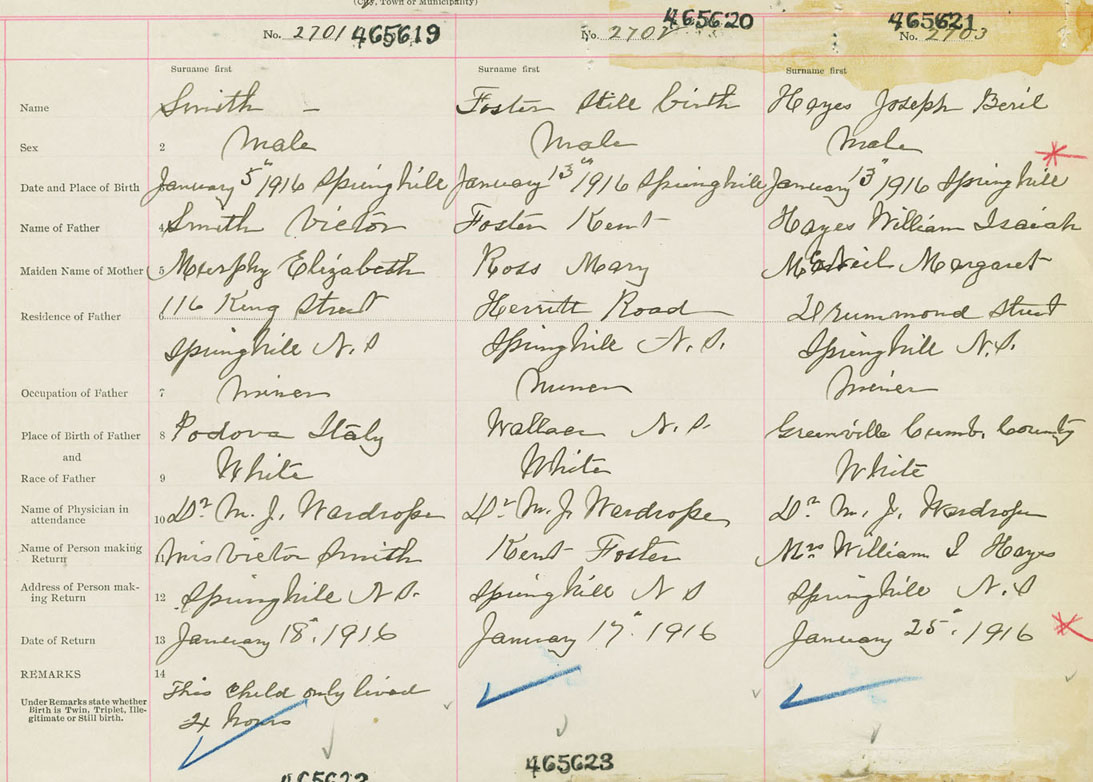 (City, Town or Municipality)
465620 465621
No. 2701 465619 No. 2702 No. 2703
Surname first Surname first Surname first
Name Smith — Foster Still birth Hayes Joseph Beril
Sex 2 Male Male Male
Date and Place of Birth January 5" 1916 Springhill January 13th 1916 Springhill January 13" 1916 Springhill
Name of Father 4 Smith Victor Foster Kent Hayes William Isaiah
Maiden Name of Mother 5 Murphy Elizabeth Ross Mary Margaret
Residence of Father 6 116 King Street Herritt Road Drummond Street
Springhill N.S Springhill N.S. Springhill N.S.
Occupation of Father 7 Miner Miner Miner
Place of Birth of Father 8 Padova Italy Wallace N.S. Greenville Cumb. County
and
Race of Father 9 White White White
Name of Physician in attendance 10 Dr M. J. Wardrope Dr M. J. Wardrope Dr M. J. Wardrope
Name of Person making Return 11 Mrs Victor Smith Kent Foster Mrs William I Hayes
Address of Person making Return 12 Springhill N.S. Springhill N S Springhill N.S
Date of Return 13 January 18". 1916 January 17". 1916 January 25". 1916
REMARKS 14
This child only lived
Under Remarks state whether Birth is Twin, Triplet, Illegitimate or Still birth.
hours
465622 465623